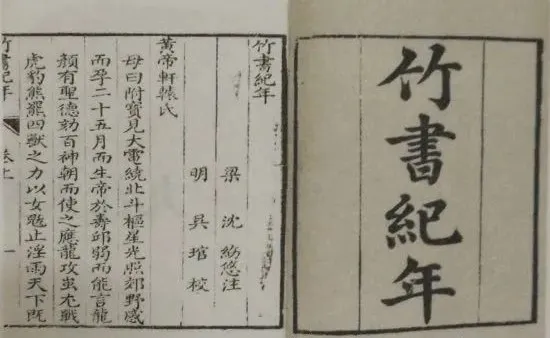 竹書紀年
竹書紀年
梁 沈 約 悠注
明 吳 琯 校
黃帝軒轅氏
母曰附寶見大電繞北斗樞星光照郊野感
而孕二十五月而生帝於壽邱弱而能言龍
顏有聖德劾百神朝而使之應龍攻蚩尤戰
虎豹熊羆四獸之力以女魃止淫雨天下既
竹書紀年 卷上 一